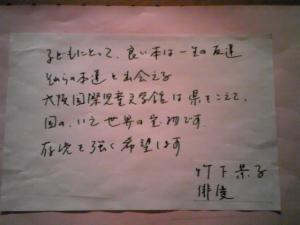 子どもにとって、良い本は一生の友達
それらの本達と出会える
大阪国際児童文学館は県をこえて、
国の、いえ世界の宝物です
存続を強く希望します
竹下景子
俳優